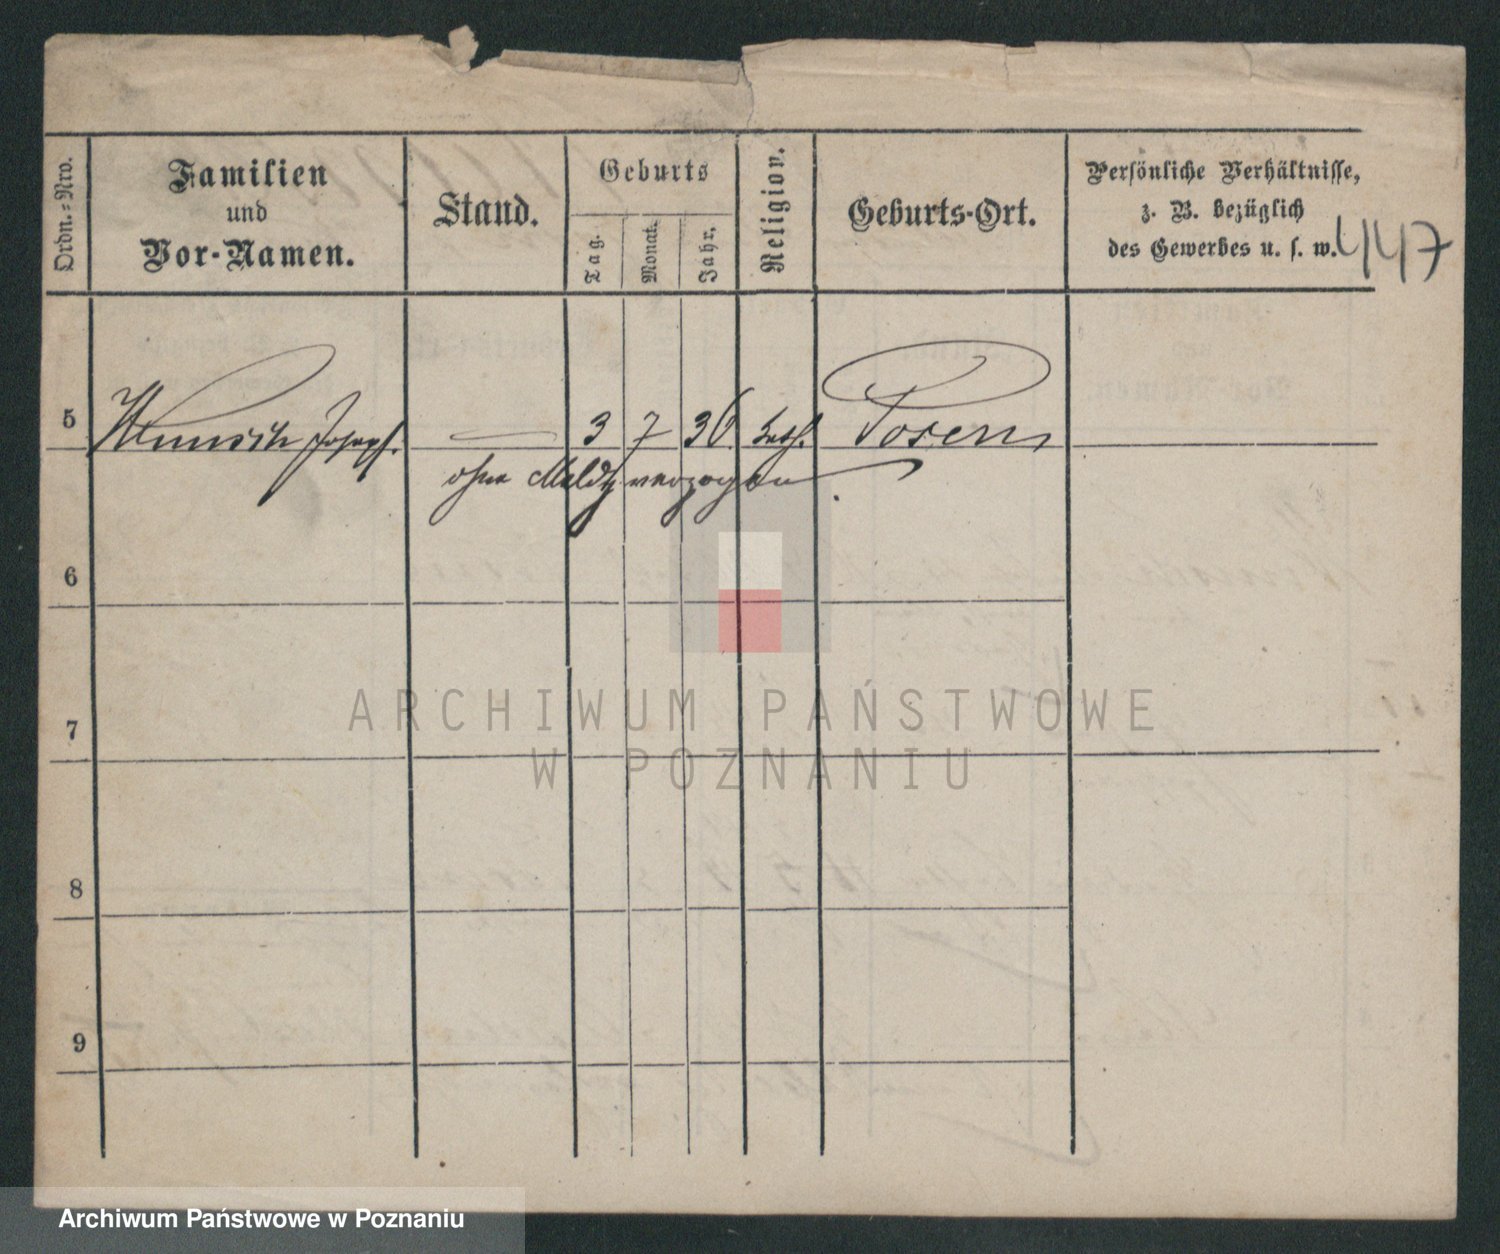 Ordn.-Nro.
Familien
und
Vor-Namen.
Stand.
Geburts
Tag.
Monat.
Jahr.
Religion.
Geburts-Ort.
Persönliche Verhältnisse,
z. B. bezüglich
des Gewerbes u. s. w.
447
5 Joseph. — 3 7 36 kath. Posen
ohne Meldg verzogen
6
7
8
9
ARCHIWUM PAŃSTWOWE
W POZNANIU
Archiwum Państwowe w Poznaniu